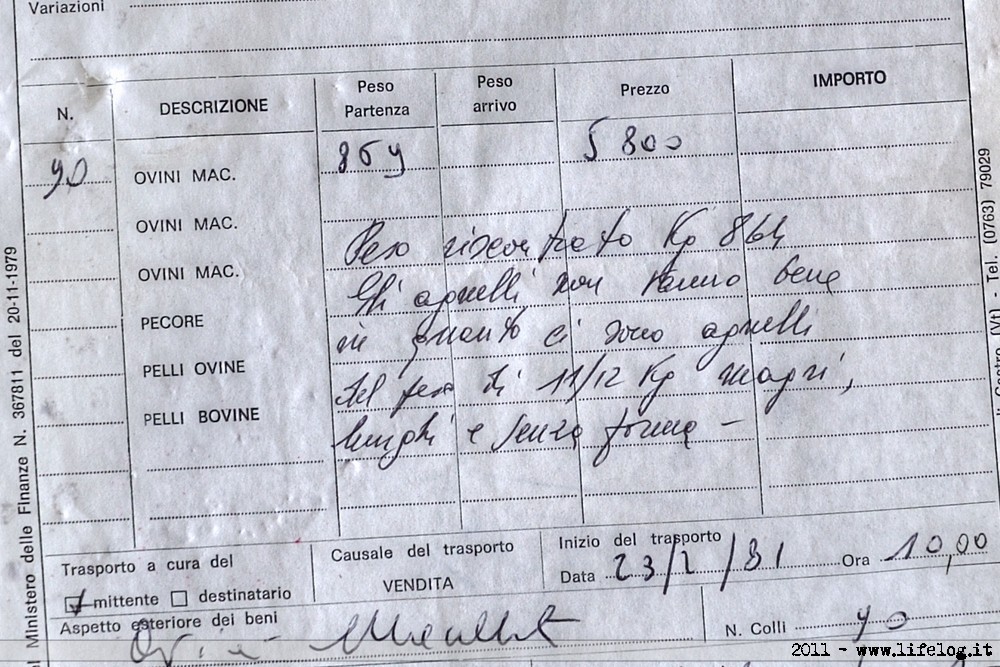 Variazioni
N. DESCRIZIONE Peso Partenza Peso arrivo Prezzo IMPORTO
90 OVINI MAC. 869 5800
OVINI MAC.
Peso riscontrato Kg 864
OVINI MAC.
Gli agnelli non vanno bene
PECORE
in quanto ci sono agnelli
PELLI OVINE
del peso di 11/12 Kg magri,
PELLI BOVINE
lunghi e senza forma -
Trasporto a cura del
mittente destinatario
Causale del trasporto
VENDITA
Inizio del trasporto
Data 23/2/81 Ora 10,00
Aspetto esteriore dei beni
Ovini
N. Colli 90
Ministero delle Finanze N. 367811 del 20-11-1979
Castro (Vt) - Tel. (0763) 79029
2011 - www.lifelog.it